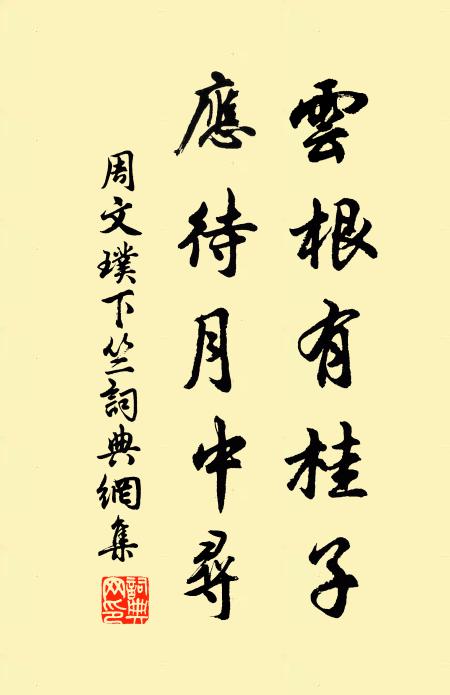 雲根有桂子
應待月中尋
周文璞下竺詞典網集
詞典
网印